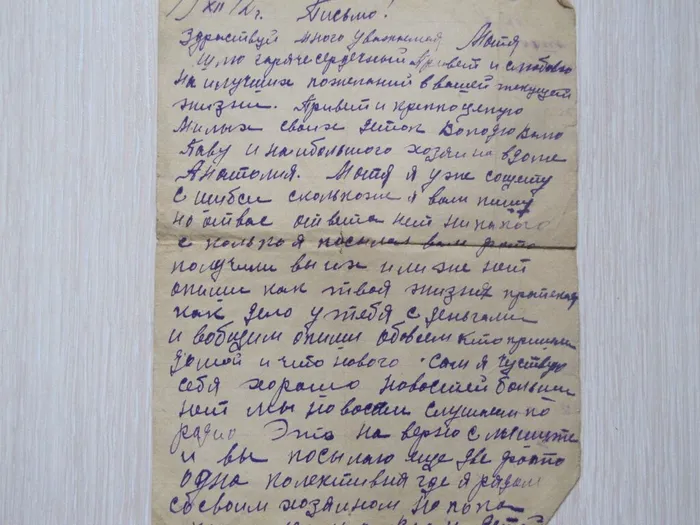 XII Письмо!
Здраствуй много уважаемая Мотя
шлю горячесердечный Привет и с любовю
наилучших пожеланий в вашей текущей
жизни. Привет и крепко целую
милых своих деток Володю Валю
и наибольшого хозяина вдоме
Анатолия. Мотя я уже сощету
сшибся сколькоже я вам пишу
но отвас ответа нет никакого
сколько я посылал вам фото
получили вы их или же нет
опиши как твоя жизня
как дело утебя с деньгами
и вобщим опиши обовсем кто пришол
домой и что нового. Сам я
себя хорошо новостей больши
нет мы новости слушаем по
радио Это на верно слышите
и вы посылаю еще две фото
одна колективная где я рядом
сосвоим хозяином